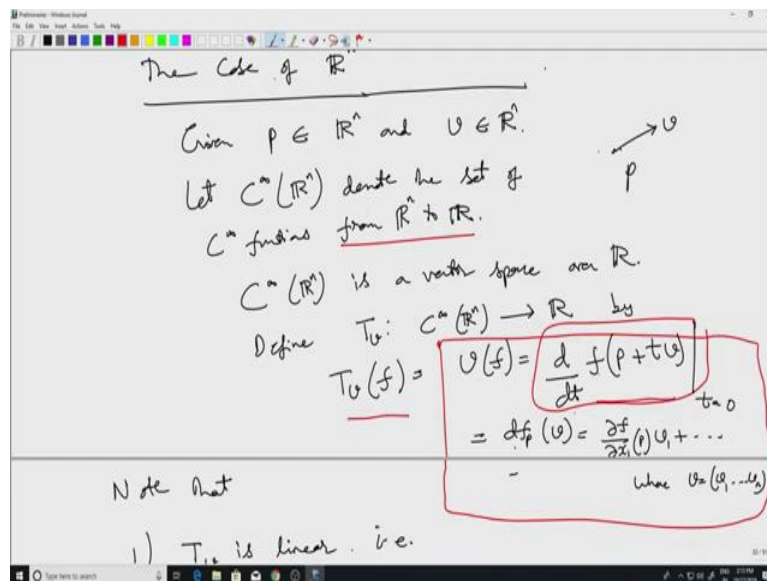 Preliminaries - Windows Journal
File Edit View Insert Actions Tools Help
The Case of ℝⁿ
Given p ∈ ℝⁿ and v ∈ ℝⁿ.
v
p
Let C^∞(ℝⁿ) denote the set of
C^∞ functions from ℝⁿ to ℝ.
C^∞(ℝⁿ) is a vector space over ℝ.
Define T_v : C^∞(ℝⁿ) → ℝ by
T_v(f) = v(f) = d/dt f(p + tv) |_{t=0}
= df_p(v) = ∂f/∂x₁(p) v₁ + ····
where v = (v₁ ... vₙ)
Note that
1) T_v is linear. i.e.
Type here to search